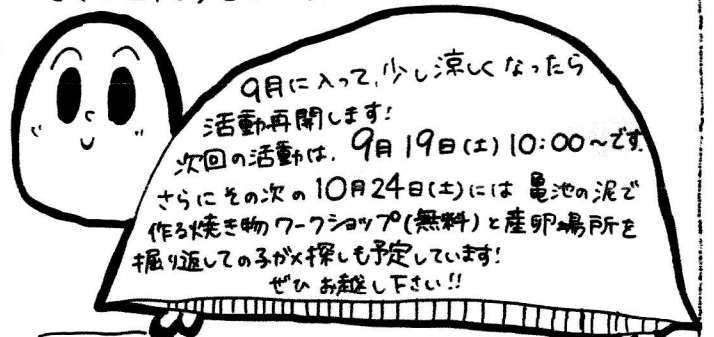 9月に入って、少し涼しくなったら
活動再開します!
次回の活動は、9月19日(土)10:00~です。
さらにその次の10月24日(土)には亀池の泥で
作る焼き物ワークショップ(無料)と産卵場所を
掘り返しての子ガメ探しも予定しています!
ぜひお越し下さい!!